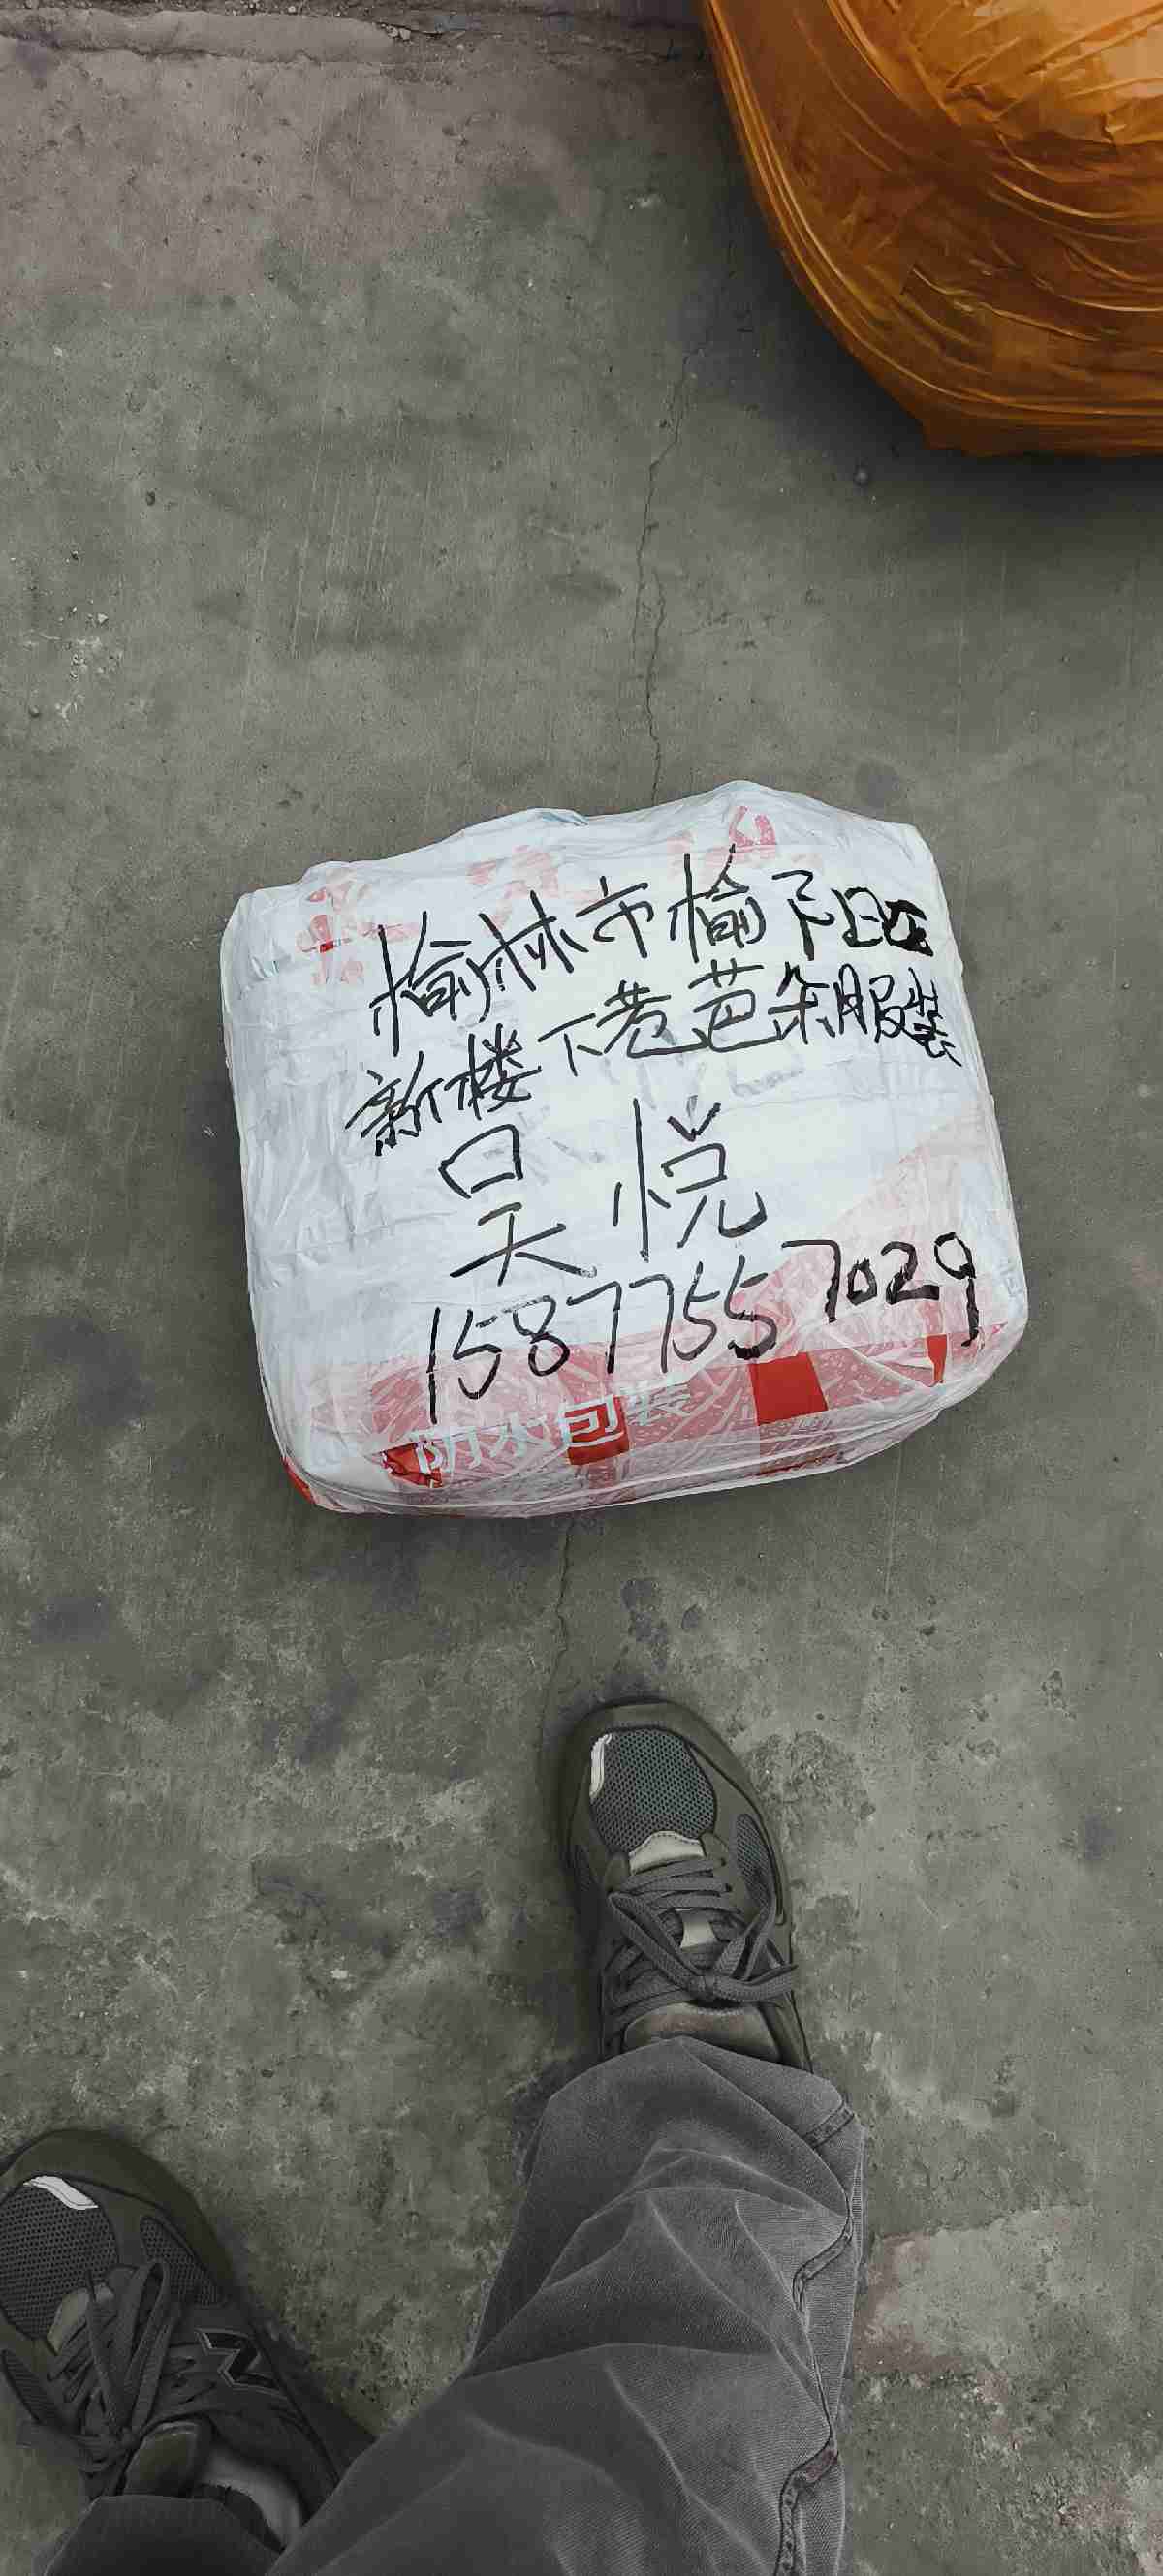 榆林市榆阳区
新楼下巷芭朵服装
吴悦
15877557029
防水包装